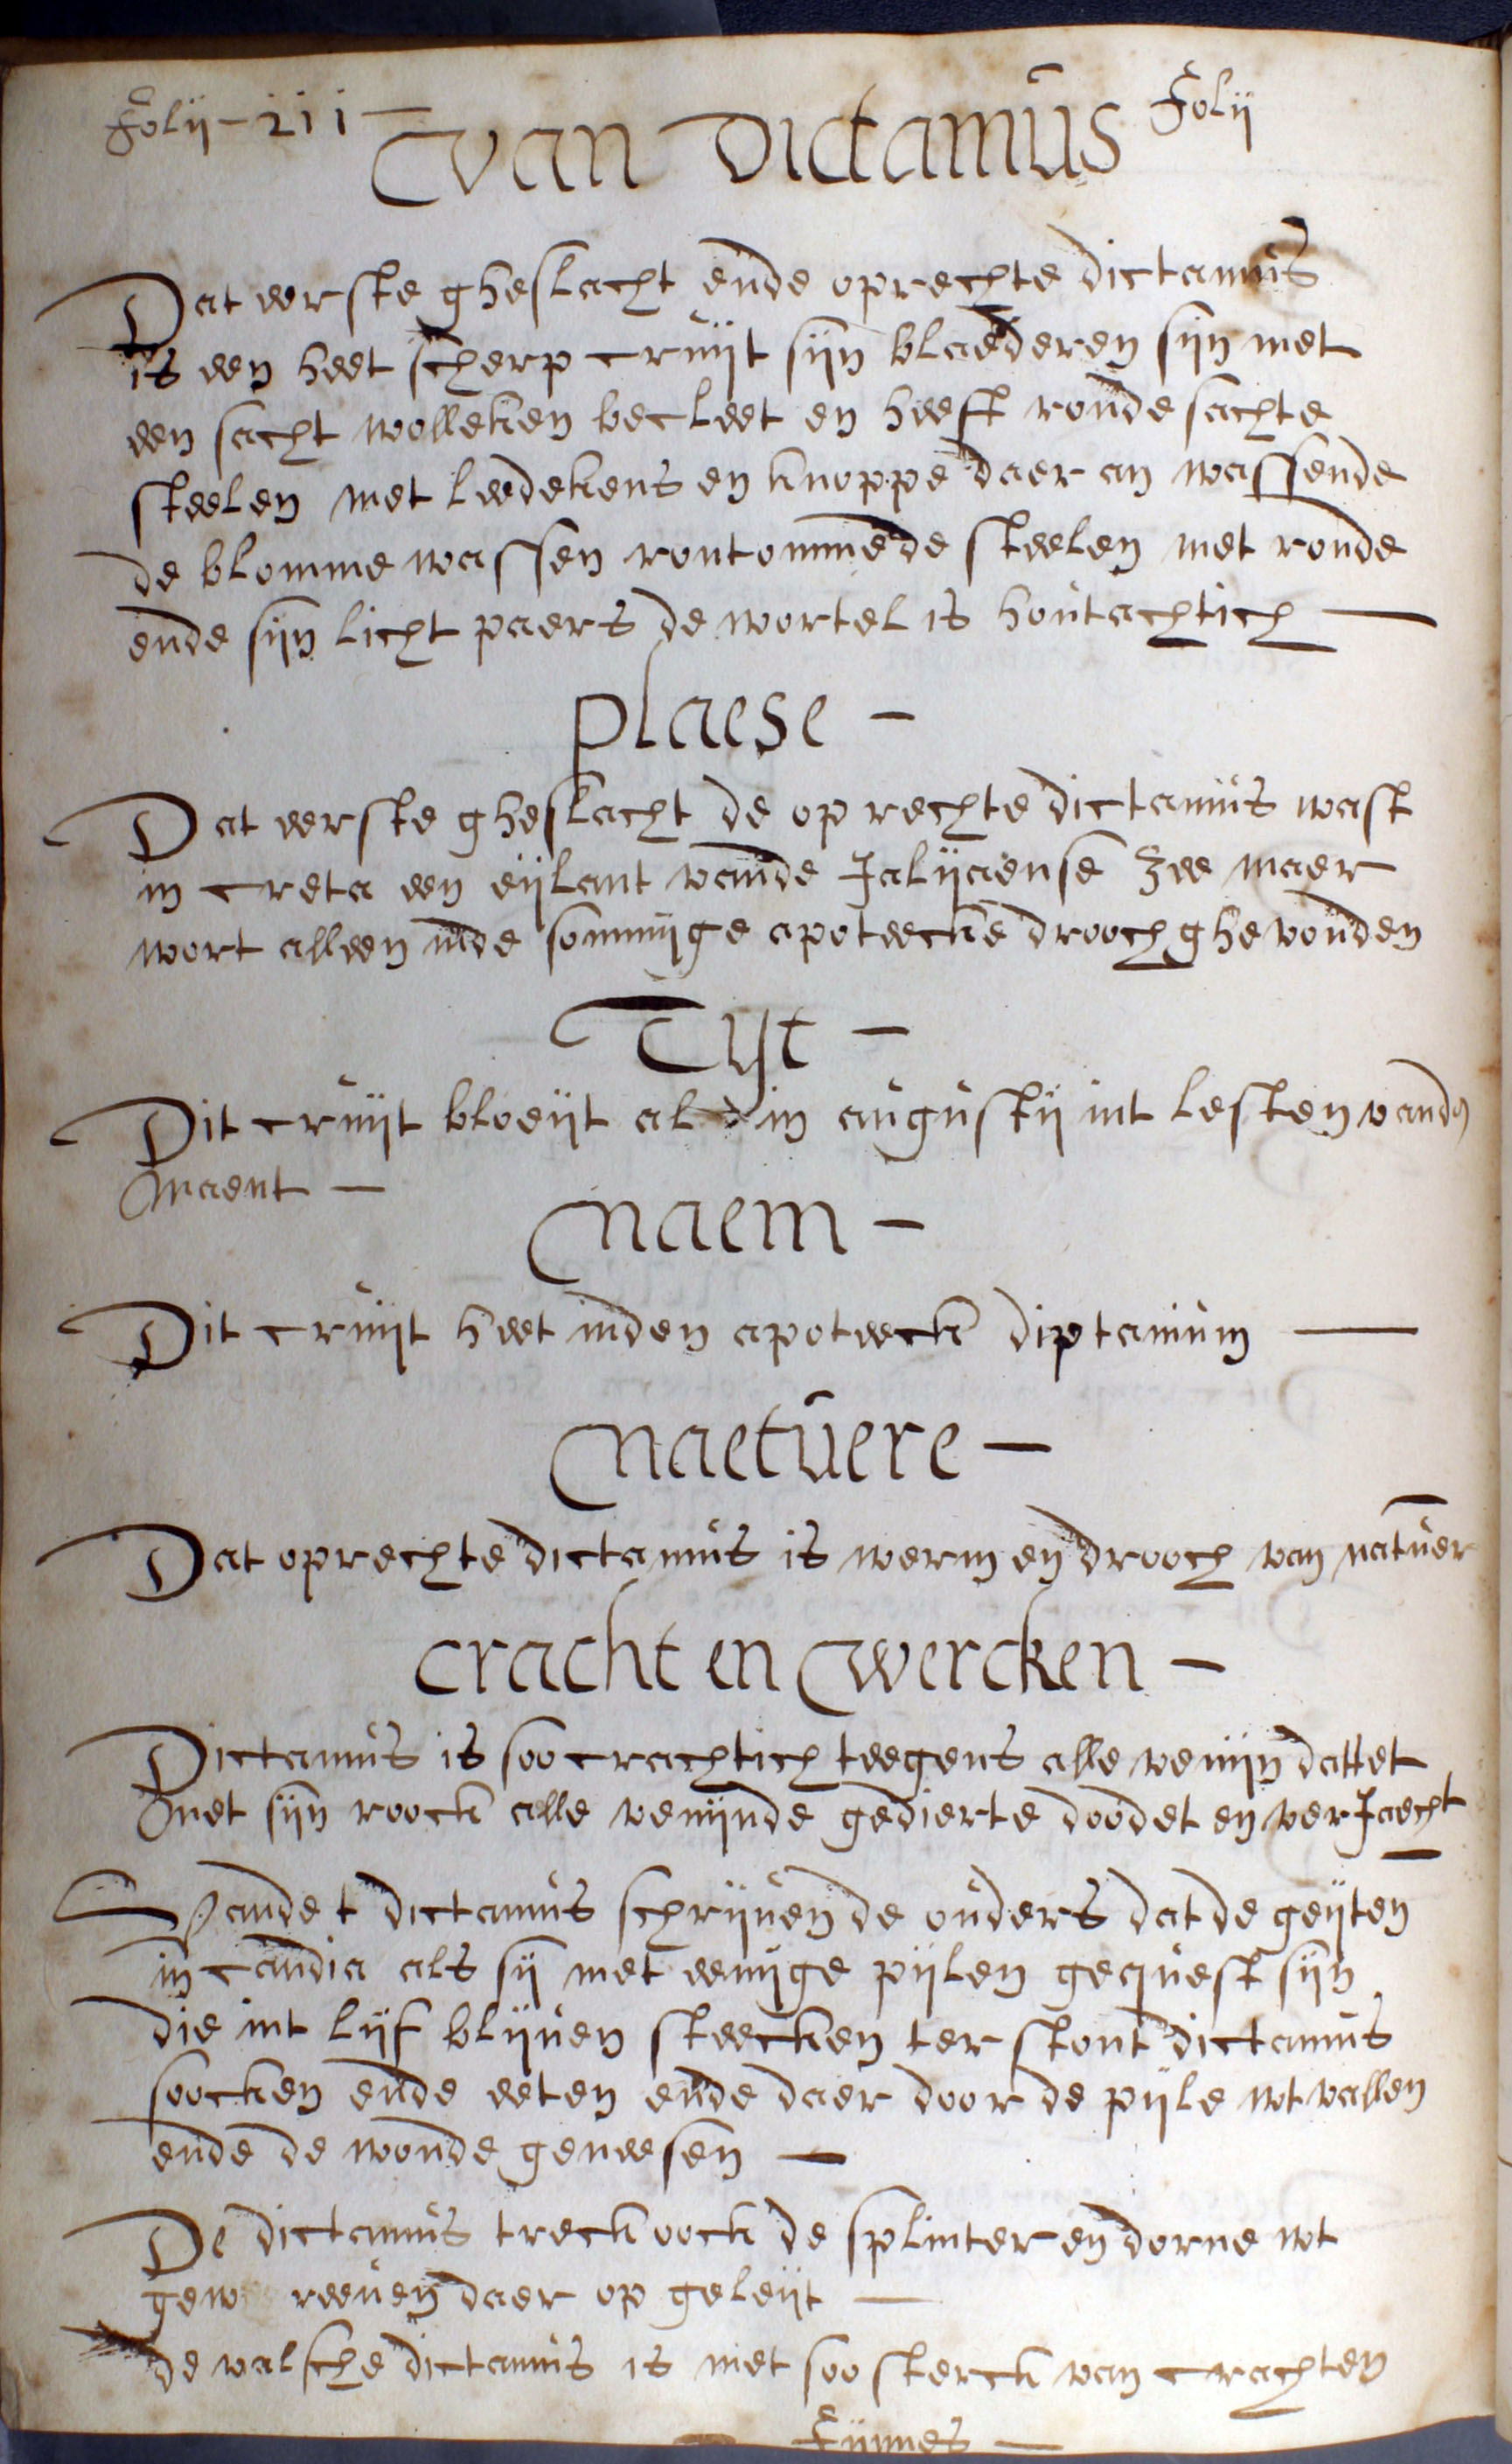 Folij - 211 - Folij
van Dictamus
Dat eerste gheslacht ende oprechte dictamus
is een heet scherp cruijt sijn blaederen sijn met
een sacht wolleken becleet en heeft ronde sachte
steelen met leedekens en knoppe daer an wassende
de blomme wassen rontomme de steelen met ronde
ende sijn licht paers de wortel is houtachtich —
plaese -
Dat eerste gheslacht de oprechte dictamus wast
in creta een eijlant vande Jalijaense zee maer
wort alleen inde sommige apoteecke drooch ghevonden
Tijt -
Dit cruijt bloeijt al in augustij int lesten vande
Maent -
naem -
Dit cruijt heet inden apoteeck diptamum —
naetuere -
Dat oprechte dictamus is werm en drooch van natuer
cracht en wercken -
Dictamus is soo crachtich teegens alle venijn dattet
Met sijn roock alle venijnde gedierte doodet en verJaecht
Vande t dictamus schrijven de ouders dat de geijten
in candia als sij met eenige pijlen gequest sijn
die int lijf blijven steecken terstont dictamus
soocken ende eeten ende daer door de pijle wt vallen
ende de wonde geneesen —
De dictamus treck oock de splinter en dorne wt
gew reeven daer op geleijt —
de valsche dictamus is niet soo sterck van crachten
Fijnnes —